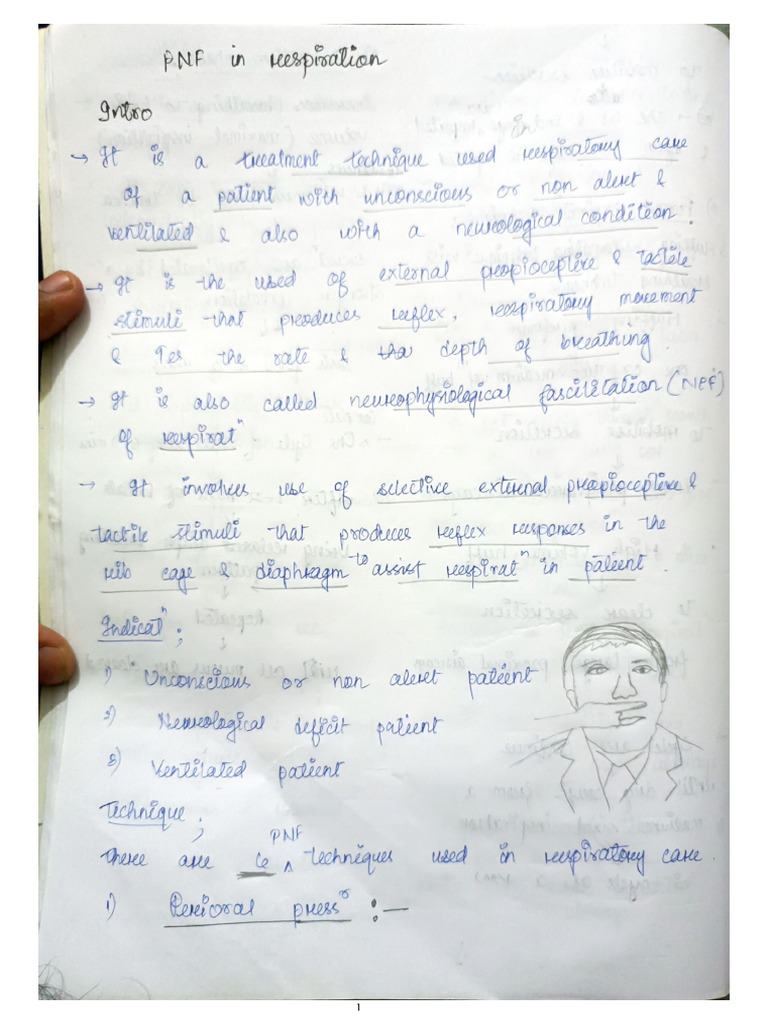 PNF in respiration
Intro
→ It is a treatment technique used respiratory care
of a patient with unconscious or non alert &
ventilated & also with a neurological condition.
→ It is the used of external propioceptive & tactile
stimuli that produces reflex, respiratory movement
& ↑es the rate & the depth of breathing.
→ It is also called neurophysiological fascilitation (NPF)
of respiratⁿ
→ It involves use of selective external propioceptive &
tactile stimuli that produces reflex responses in the
rib cage & diaphragm to assist respiratⁿ in patient.
Indicatⁿ;
1) Unconscious or non alert patient
2) Neurological deficit patient
3) Ventilated patient
Technique;
There are 6 PNF techniques used in respiratory care.
1) Perioral pressʳ :—
1